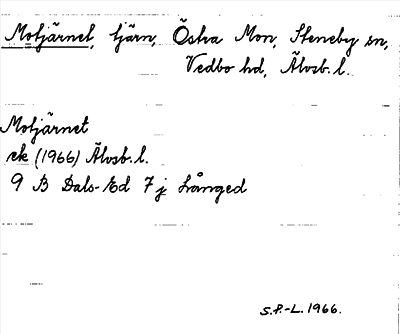 Motjärnet, tjärn, Östra Mon, Steneby sn,
Vedbo hd, Älvsb. l.
Motjärnet
ek (1966) Älvsb. l.
9 B Dals-Ed 7 j Långed
S.P.-L. 1966.